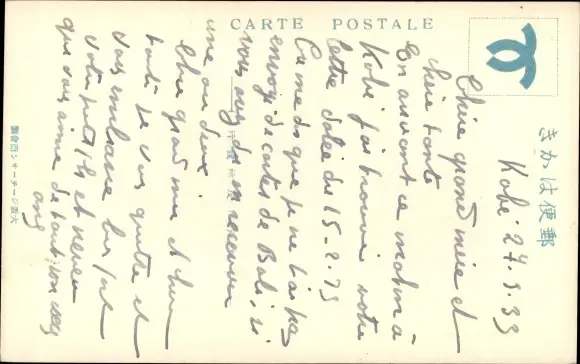 CARTE POSTALE
郵便はかき
Kobé 27.5.33
Chère grand mère et
chère tante
En arrivant ce matin à
Kobé j'ai trouvé votre
lettre datée du 15-2-73
Tu me dis que je ne t'ai pas
envoyé de cartes de Bali, si
vous avez dû en recevoir
une ou deux.
Chère grand mère et chère
tante je vous quitte et
vous embrasse bien fort
votre petit fils et neveu
que vous aime de tout son cœur